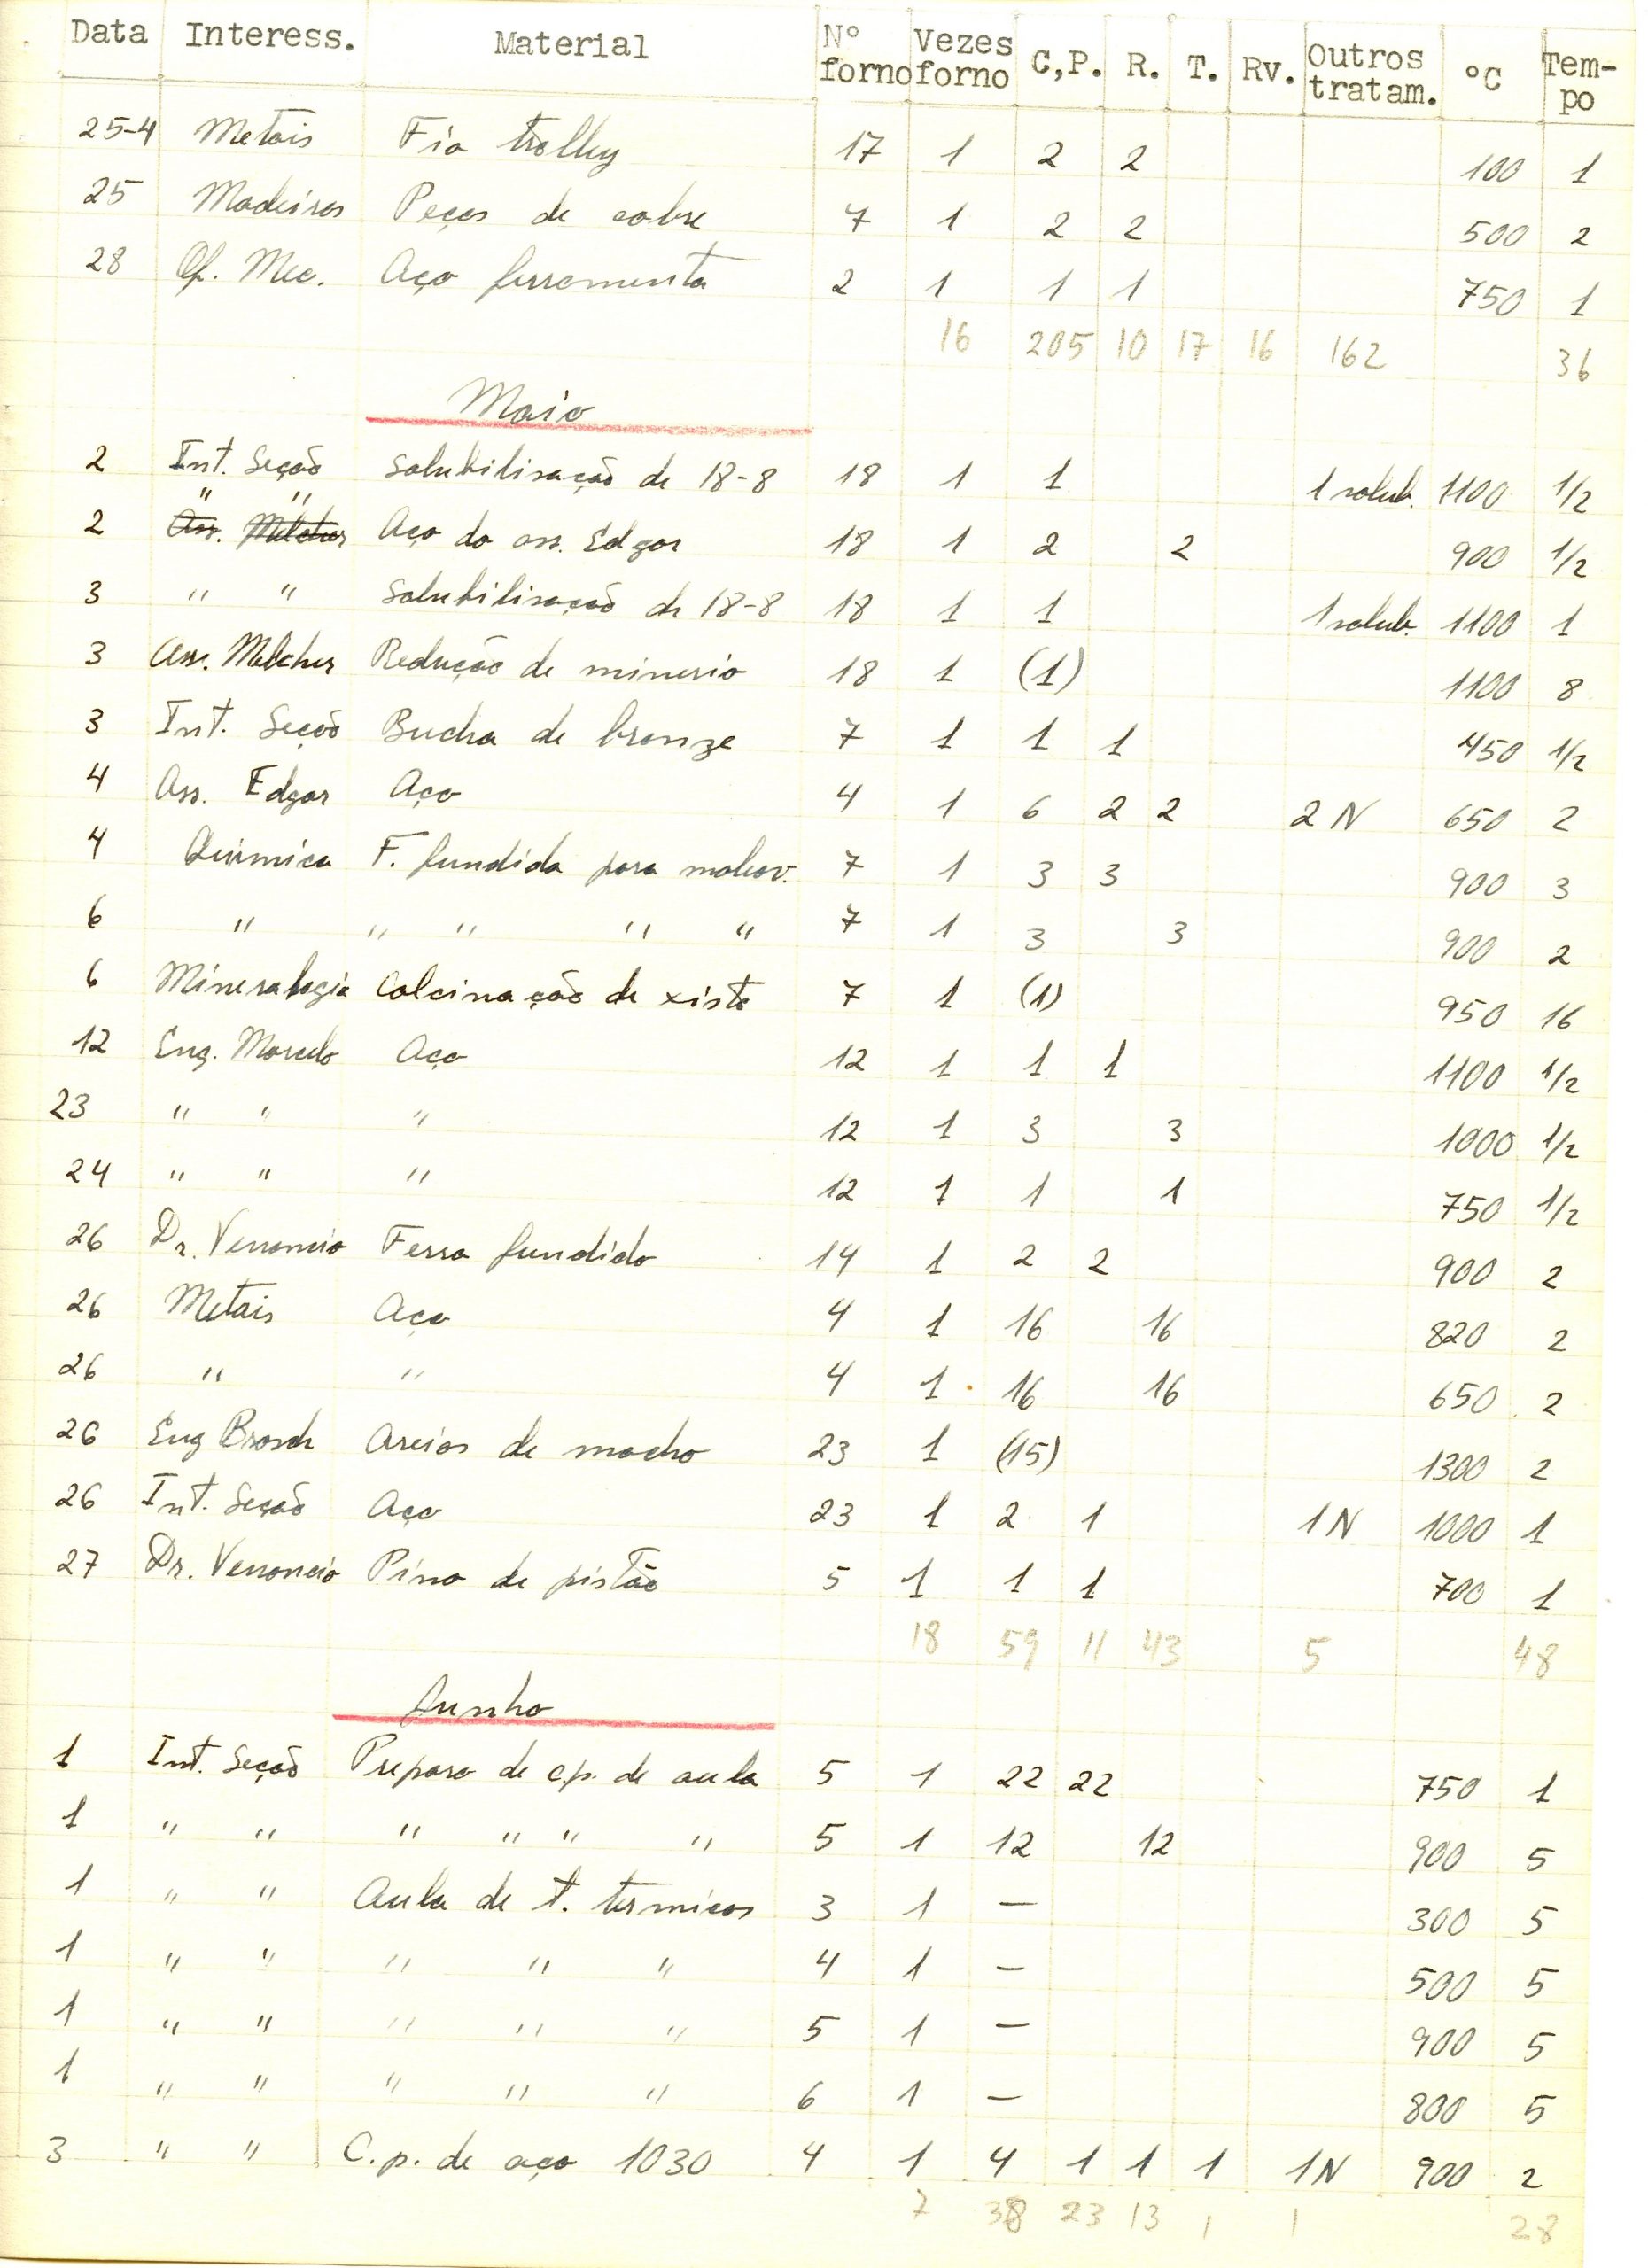 Data Interess. Material Nº forno Vezes forno C,P. R. T. Rv. Outros tratam. ºC Tem-po
25-4 Metais Fio trolley 17 1 2 2 100 1
25 Madeiras Peças de cobre 7 1 2 2 500 2
28 Of. Mec. Aço ferramenta 2 1 1 1 750 1
16 205 10 17 16 162 36
Maio
2 Int. Seção Solubilisação de 18-8 18 1 1 1 solub. 1100 1/2
" "
2 Ass. Melcher Aço do ass. Edgar 18 1 2 2 900 1/2
3 " " Solubilisação de 18-8 18 1 1 1 solub. 1100 1
3 Ass. Melcher Redução de minerio 18 1 (1) 1100 8
3 Int. Seção Bucha de bronze 7 1 1 1 450 1/2
4 Ass. Edgar Aço 4 1 6 2 2 2 N 650 2
4 Quimica F. fundido para maleav. 7 1 3 3 900 3
6 " " " " " 7 1 3 3 900 2
6 Mineralogia Calcinação de xisto 7 1 (1) 950 16
12 Eng. Marcelo Aço 12 1 1 1 1100 1/2
23 " " " 12 1 3 3 1000 1/2
24 " " " 12 1 1 1 750 1/2
26 Dr. Venancio Ferro fundido 14 1 2 2 900 2
26 Metais Aço 4 1 16 16 820 2
26 " " 4 1 16 16 650 2
26 Eng Brosch Areias de macho 23 1 (15) 1300 2
26 Int. Seção Aço 23 1 2 1 1 N 1000 1
27 Dr. Venancio Pino de pistão 5 1 1 1 700 1
18 59 11 43 5 48
Junho
1 Int. Seção Preparo de c.p. de aula 5 1 22 22 750 1
1 " " " " " " 5 1 12 12 900 5
1 " " Aula de t. termicos 3 1 — 300 5
1 " " " " " 4 1 — 500 5
1 " " " " " 5 1 — 900 5
1 " " " " " 6 1 — 800 5
3 " " C.p. de aço 1030 4 1 4 1 1 1 1 N 900 2
7 38 23 13 1 1 28